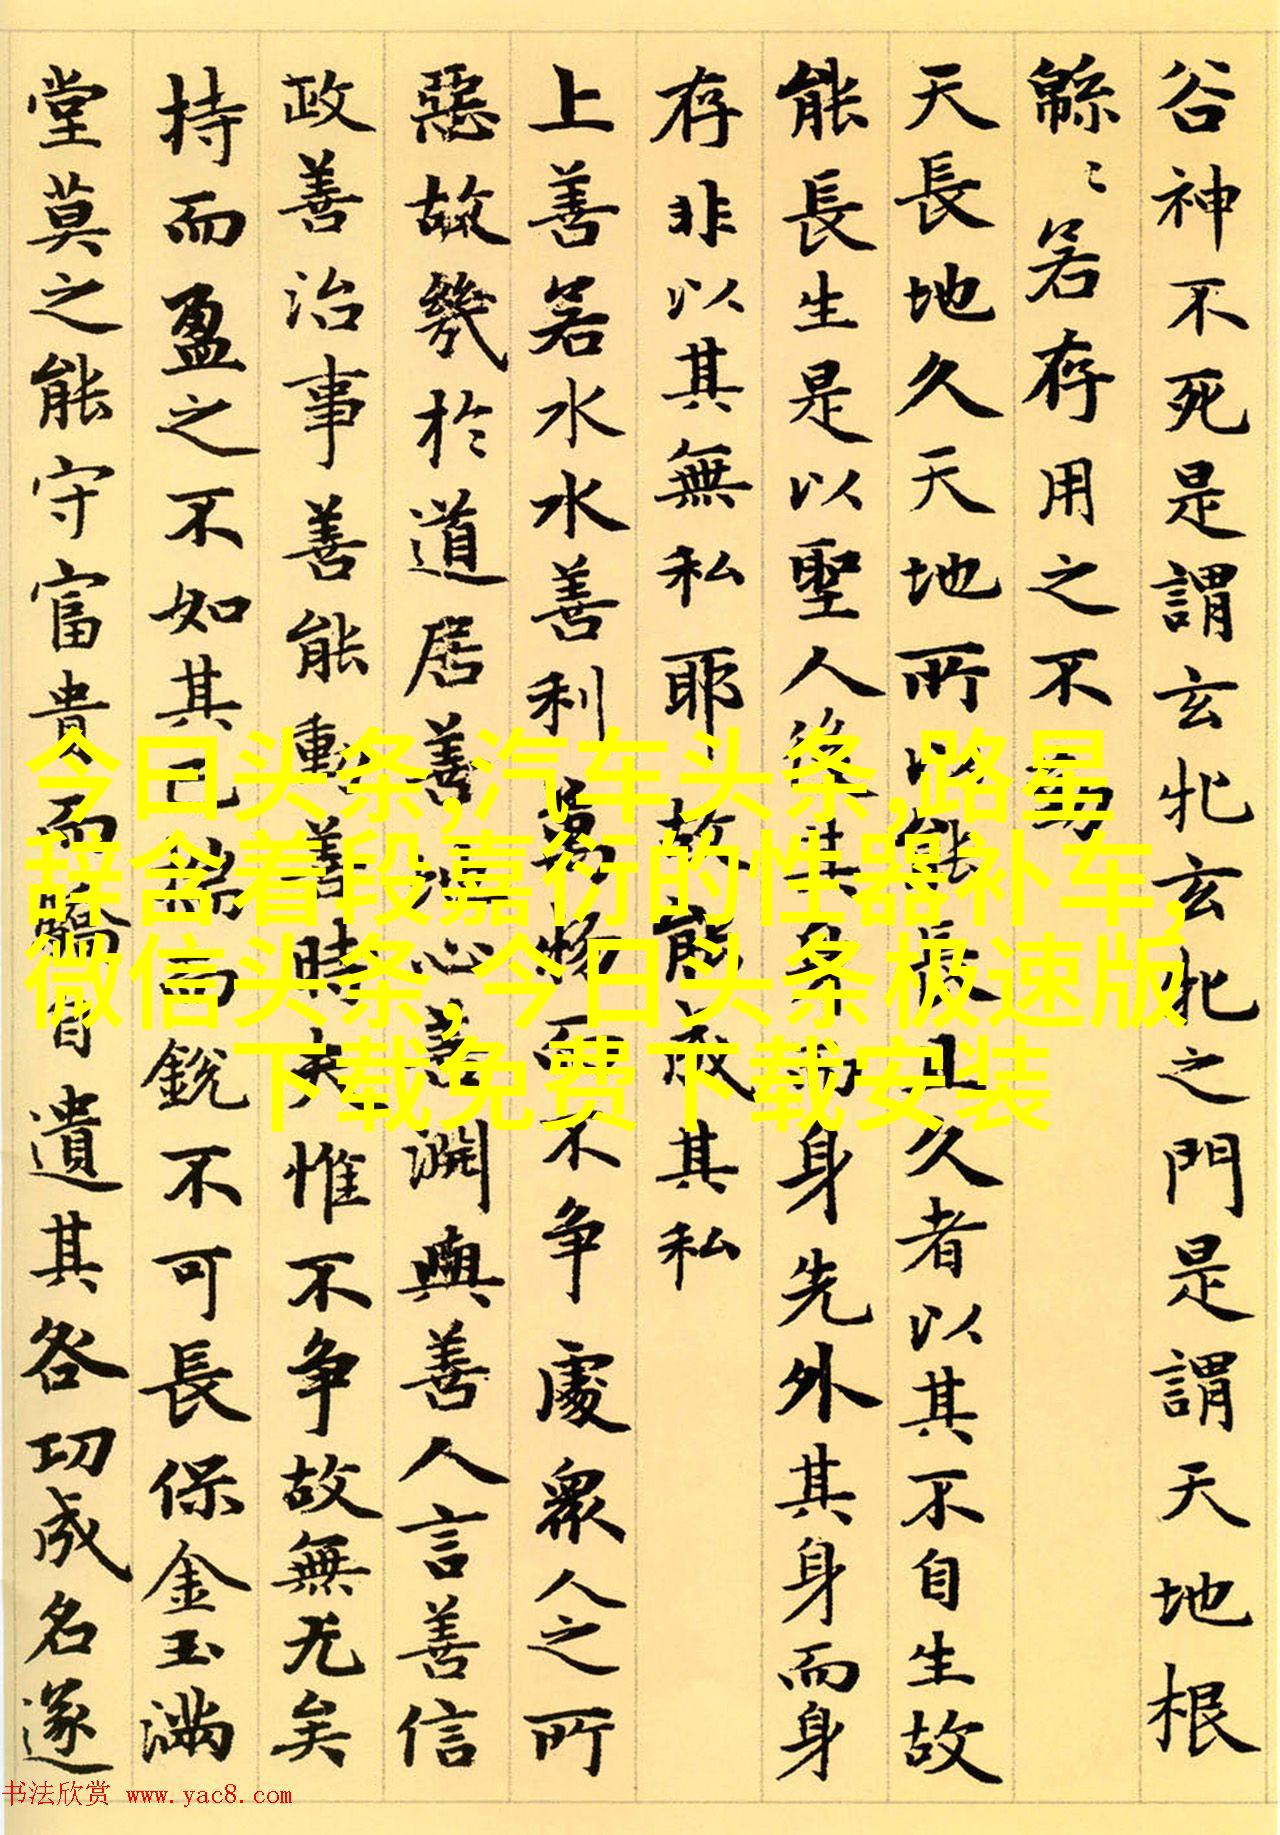 谷神不死是謂玄牝玄牝之門是謂天地根
緜〻若存用之不勤
天長地久天地所以能長且久者以其不自生故
能長生是以聖人後其身而身先外其身而身
存非以其無私耶故能成其私
上善若水水善利萬物而不争處衆人之所
惡故幾於道居善地心善淵與善人言善信
政善治事善能動善時夫惟不争故無尤矣
持而盈之不如其已揣而銳不可長保金玉滿
堂莫之能守富貴而驕自遺其咎功成名遂
今日头条,汽车头条,路星
辞含着段嘉衍的性器补车,
微信头条,今日头条极速版
下载免费下载安装
书法欣赏 www.yac8.com